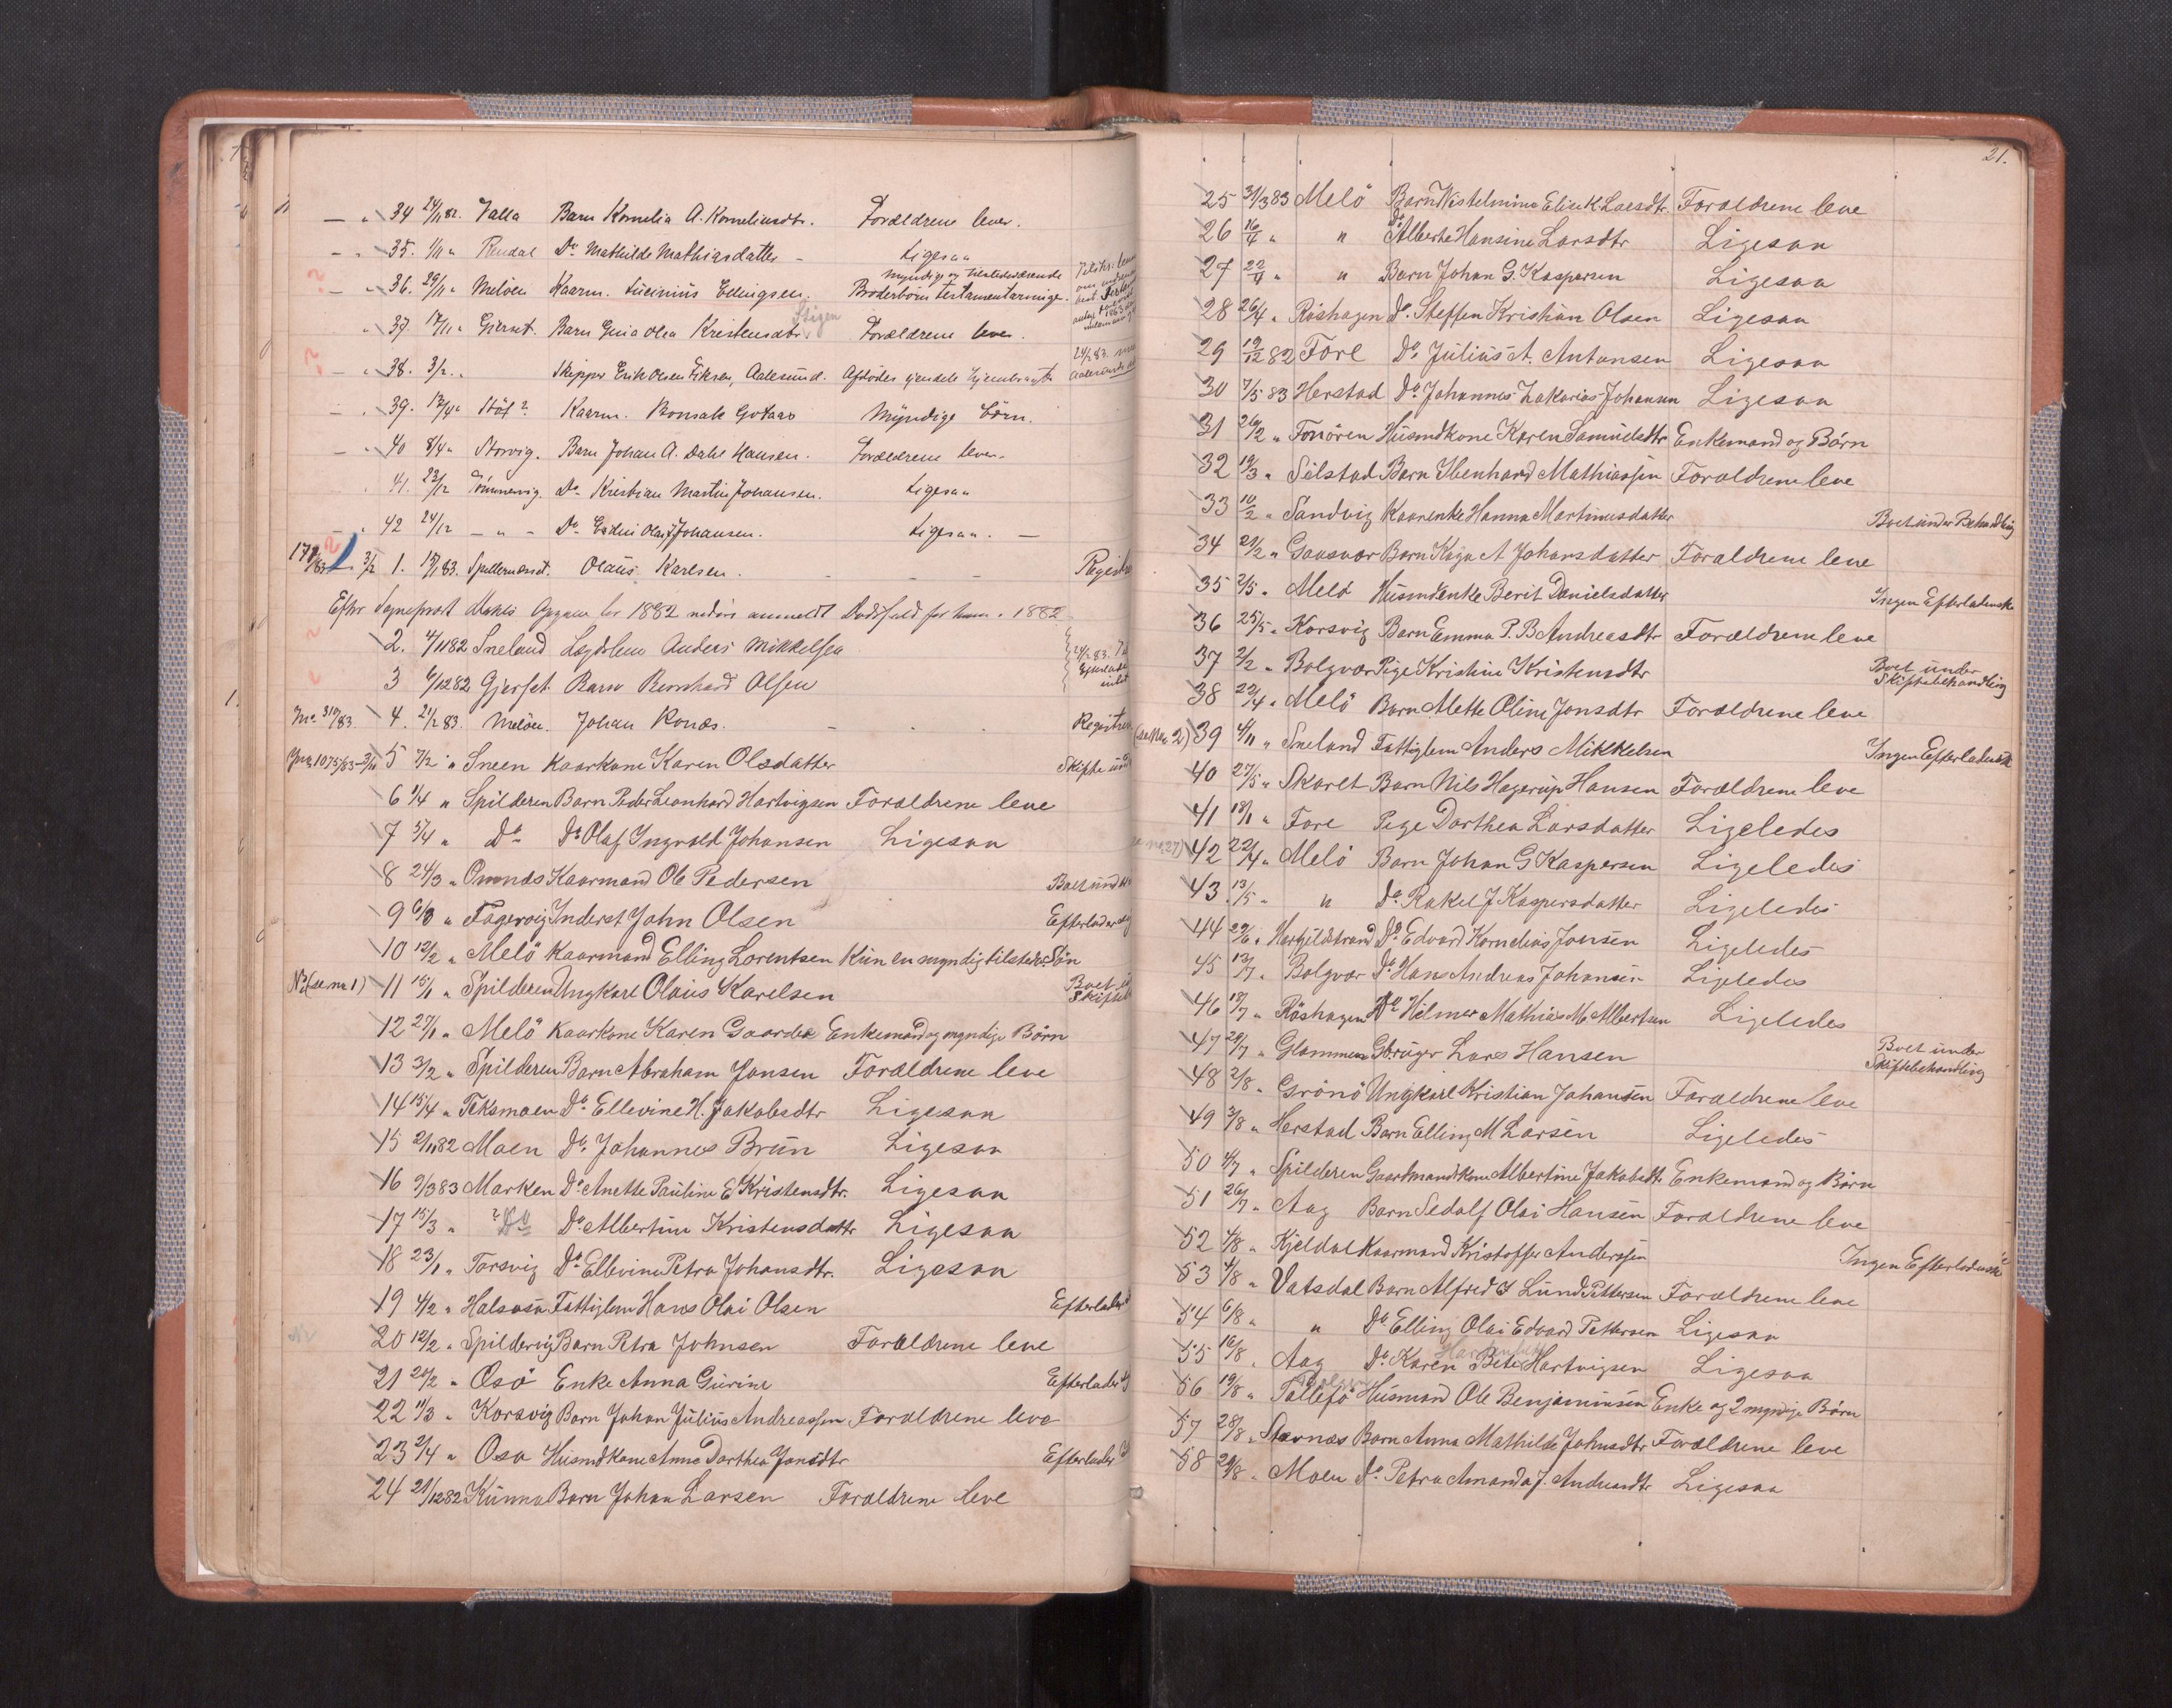 34 24/11 82. Valla Barn Kornelia A. Korneliusdtr. Forældrene lever.
35. 1/11 " Rendal Do. Mathilde Mathiasdatter - Ligesaa
myndige og tilstedeværende
36. 29/11 " Melöen Kaarm. Lucinius Ellingsen. Broderbörn testamentarvinge.
Stegen
37. 17/11 " Gjerset. Barn Guia Olea Kristensdtr. Forældrene lever.
38. 3/2 " Skipper Erik Olsen Eiksen, Aalesund. Afdödes ejendele hjembragt
39. 12/4 " Stöt? Kaarm. Ronsak Gotaas Myndige börn.
40 8/4 " Storvig. Barn Johan A. Dahl Hansen. Forældrene lever.
41. 23/12 Tömmervig. Do. Kristian Martin Johansen. Ligesaa
42 24/12 - " - Do. Endin Olaf Johansen. Ligesaa. -
171/83 3/2 1. 15/1 83. Spilleren Olaüs Karlsen. - - - Regist
Efter Sogneprest Opgave for 1882 nedörs anmeldt Dödsfald for 1882
2. 4/11 82 Sneland Lægdslem Anders Mikkelsen
3 6/12 82 Gjerset Barn Bernhard Olsen
Jno. 310/83. 4. 21/2 83. Melöen. Johan Ronæs. - . . Registre
Jno. 1075/83 5 7/2 " Sneen Kaarkone Karen Olsdatter Skifte und
6 1/4 " Spilderen Barn Peder Leonhard Hartvigsen Forældrene leve
7 5/4 " Do. Do. Olaf Ingvald Johansen Ligesaa
8 24/3 " Ornnæs Kaarmand Ole Pedersen Boet und
9 6/3 " Fagervig Inderst John Olsen Efterlader
10 12/2 " Melö Kaarmand Elling Lorentsen Kun en myndig tilstedev. Sön
No. (se nr. 1) 11 15/1 " Spilderen Ungkarl Olaüs Karelsen Boet
Skifte
12 27/1 " Melö Kaarkone Karen Gaarder Enkemand og myndige Börn
13 3/2 " Spilderen Barn Abraham Jonsen Forældrene leve
14 15/4 " Teksmoen Do. Ellevine H. Jakobsdtr Ligesaa
15 2/11 82 Moen Do. Johannes Brun Ligesaa
16 9/3 83 Marken Do. Anette Pauline E Kristensdtr. Ligesaa
17 15/3 " ? Do Do. Albertine Kristensdatter Ligesaa
18 23/1 " Torsvig Do. Ellevine Petra Johansdtr. Ligesaa
19 4/2 " Halsosen Fattiglem Hans Olai Olsen Efterlader
20 12/2 " Spildervig Barn Petra Johnsen Forældrene leve
21 20/2 " Osö Enke Anna Gurine Efterlader
22 11/3 " Korsvig Barn Johan Julius Andreassen Forældrene leve
23 2/4 " Osa Husmdkone Anna Dorthea Jonsdtr Efterlader
24 21/12 82 Kunna Barn Johan Larsen Forældrene leve
21.
25 31/3 83 Melö Barn Wilhelmina Elise K Larsdtr. Forældrene leve
26 16/4 " " Do Alberte Hansine Larsdtr Ligesaa
27 22/4 " " Barn Johan G. Kaspersen Ligesaa
28 26/4 " Röshagen Do. Steffen Kristian Olsen Ligesaa
29 19/12 82 Fore Do. Julius A. Antonsen Ligesaa
30 7/5 83 Herstad Do. Johannes Zakarias Johansen Ligesaa
31 26/2 " Fonören Husmdkone Karen Samuelsdtr Enkemand og Börn
32 19/3 " Selstad Barn Ebenhard Mathiassen Forældrene leve
33 10/2 " Sandvig Kaarenke Hanna Martinusdatter Boet under Behandling
34 21/2 " Gaasvær Barn Kaja A Johansdatter Forældrene leve
35 2/5 " Melö Husmdenke Berit Danielsdatter Ingen Efterladensk
36 25/5 " Korsvig Barn Emma P. B Andreasdtr Forældrene leve
37 2/2 " Bolgvær Pige Kristine Kristensdtr Boet under
Skiftebehandling
38 22/4 " Melö Barn Mette Oline Jonsdtr Forældrene leve
(se No. 2) 39 4/11 " Sneland Fattiglem Anders Mikkelsen Ingen Efterladensk
40 27/5 " Skaret Barn Nils Hagerup Hansen Forældrene leve
41 18/1 " Fore Pige Dorthea Larsdatter Ligeledes
(se no. 27) 42 22/4 " Melö Barn Johan G Kaspersen Ligeledes
43 13/5 " " Do. Rakel J Kaspersdatter Ligeledes
44 29/6 " Havgildstrand Do. Edvard Kornelius Jonsen Ligeledes
45 12/7 " Bolgvær Do. Hans Andreas Johansen Ligeledes
46 18/7 " Röshagen Do. Hilmar Mathias M Albertsen Ligeledes
47 28/7 " Glommen Gbruger Lars Hansen Boet under
Skiftebehandling
48 2/8 " Grönö Ungkarl Kristian Johansen Forældrene leve
49 3/8 " Herstad Barn Elling M Larsen Ligeledes
50 4/7 " Spilderen Gaardmandskone Albertine Jakobsdtr Enkemand og Börn
51 26/7 " Aag Barn Sedolf Olai Hansen Forældrene leve
52 4/8 " Kjeldal Kaarmand Kristoffer Anderssen Ingen Efterladensk
53 4/8 " Vatsdal Barn Alfred J Lund Pettersen Forældrene leve
54 6/8 " " Do. Elling Olai Edvard Pettersen Ligesaa
55 16/8 " Aag Do. Karen Hartvigsen Ligesaa
56 19/8 " Husmand Ole Benjaminsen Enke og 2 myndige Börn
57 28/8 " Stavnæs Barn Anna Mathilde Johnsdtr Forældrene leve
58 29/8 " Moen Do. Petra Amanda J. Andreasdtr Ligesaa